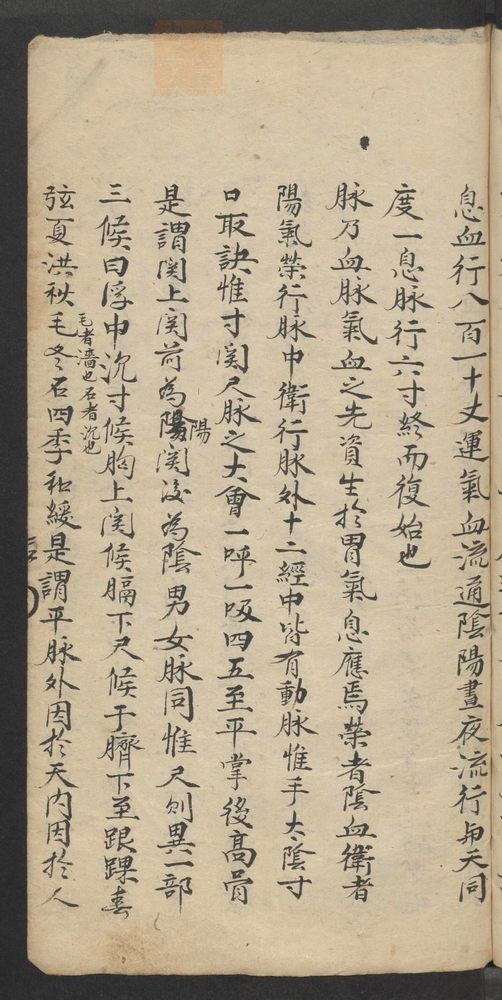 息血行八百一十丈運氣血流通陰陽晝夜流行与天同
度一息脉行六寸終而復始也
脉乃血脉氣血之先資生於胃氣息應焉榮者陰血衛者
陽氣榮行脉中衛行脉外十二經中皆有動脉惟手太陰寸
口取訣惟寸関尺脉之大會一呼一吸四五至平掌後高骨
是謂関上関前為陽関後為陰男女脉同惟尺則異一部
陽
三候曰浮中沉寸候胸上関候膈下尺候于臍下至跟踝春
毛者濇也石者沉也
弦夏洪秋毛冬石四季和緩是謂平脉外因於天内因於人